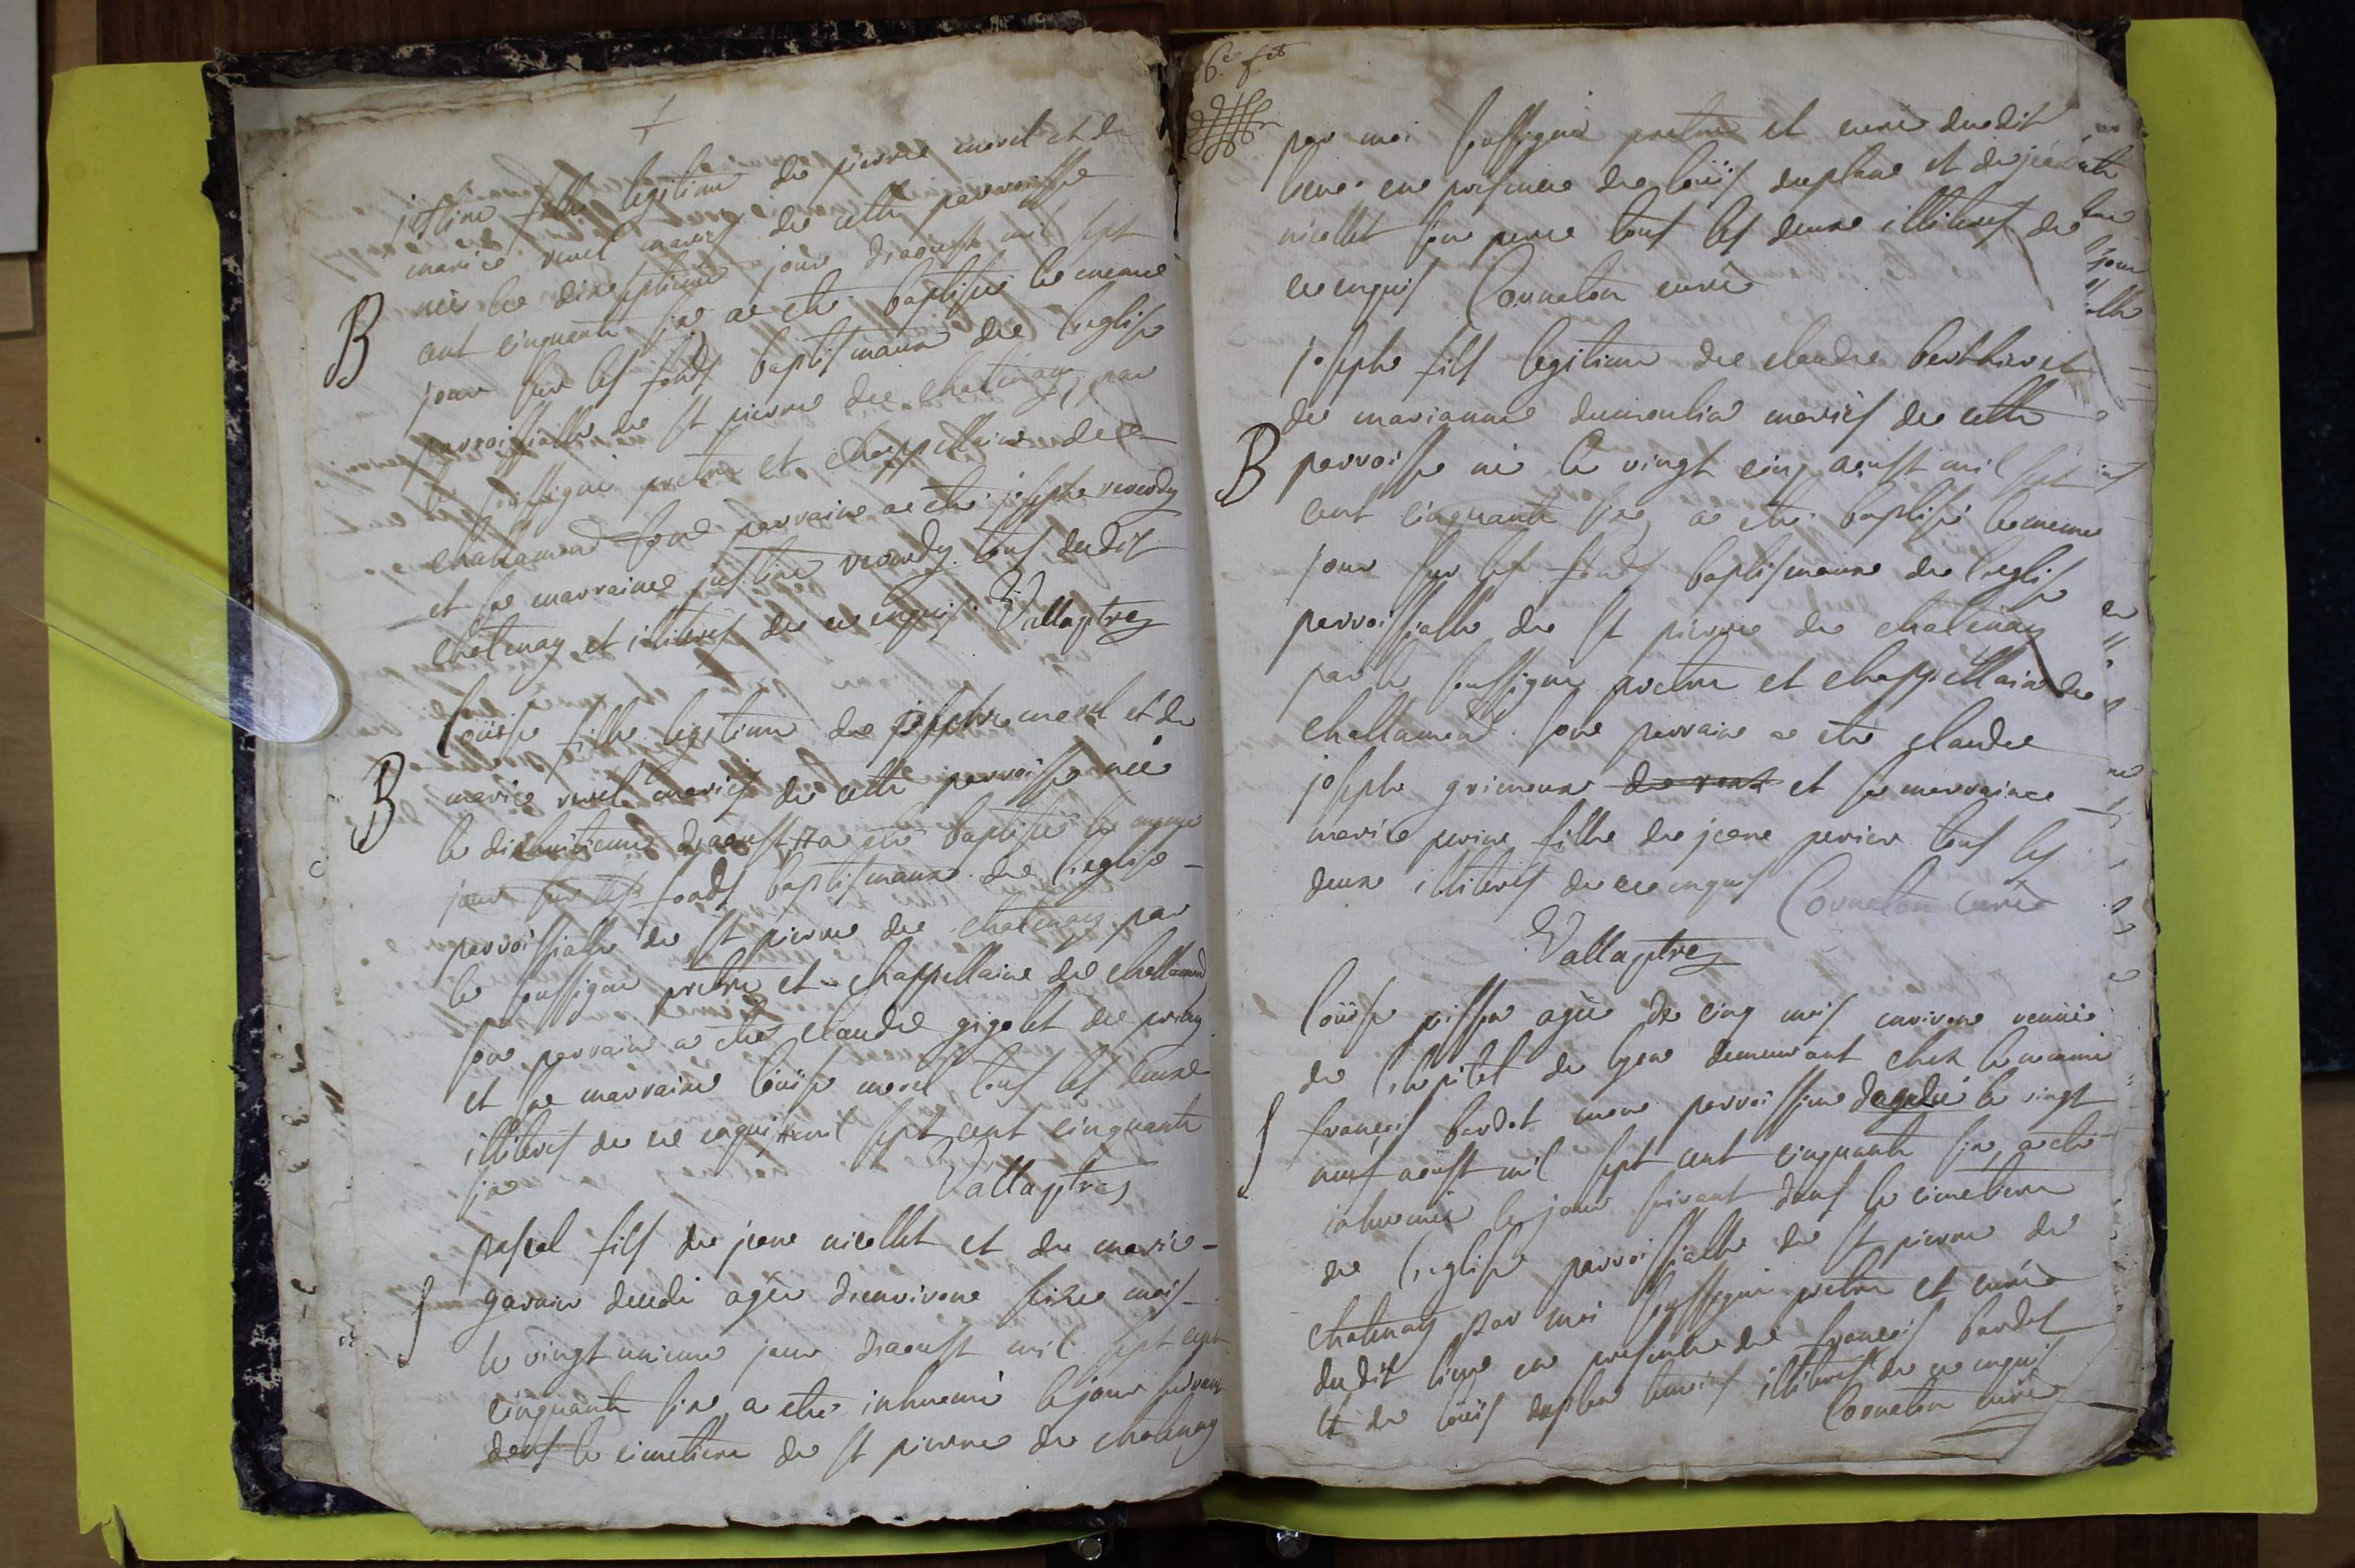 justine fille legitime de pierre morel et de
marie revel mariés de cette parroisse
B
née le dixseptieme jour d'aoust mil sept
cent cinquante six a eté baptisée le meme
jour sur les fonds baptismaux de l'eglise
parroissialle de st pierre de chatenay par
le soussigné pretre et chappellain de
challamond son parrain a eté joseph reverdy
et sa marraine justine reverdy tous dudit
chatenay et illiterés de ce enquis. Valla ptre
Louise fille legitime de joseph morel et de
B
marie revel mariés de cette parroisse née
le dixhuitieme d'aoust a eté baptisée le meme
jour sur les fonds baptismaux de l'eglise
parroissialle de st pierre de chatenay par
le soussigné pretre et chappellain de challamond
son parrain a eté claude gigolet de
et sa marraine Louise morel tous les deux
illiterés de ce enquis mil sept cent cinquante
six Valla ptre
pascal fils de jean nicollet et de marie
S
garnier agé d'environ seize mois
le vingt unieme jour d'aoust mil sept cent
cinquante six a eté inhumé le jour suivant
dans le cimetiere de st pierre de chatenay
6e ft
par moi soussigné pretre et curé dudit
lieu en presence de Loüis duplan et de jean
nicollet son pere tous les deux illiterés de
ce enquis Corneton curé
joseph fils legitime de claude berthier et
de marianne dumoulin mariés de cette
B
parroisse né le vingt cinq aoust mil sept
cent cinquante six a eté baptisé le meme
jour sur les fonds baptismaux de l'eglise
parroissialle de st pierre de chatenay
par le soussigné pretre et chappellain de
challamond son parrain a eté claude
joseph grimoux et sa marraine
marie perier fille de jean perier tous les
deux illiterés de ce enquis Corneton curé
Valla ptre
Loüise agée de cinq mois environ venüe
de l'hopital de lyon demeurant chez le nommé
S
françois bardet mon parroissien le vingt
neuf aoust mil sept cent cinquante six a eté
inhumée le jour suivant dans le cimetiere
de l'eglise parroissialle de st pierre de
chatenay par moi soussigné pretre et curé
dudit lieu en presence de françois bardet
et de Loüis duplan illiterés de ce enquis
Corneton curé